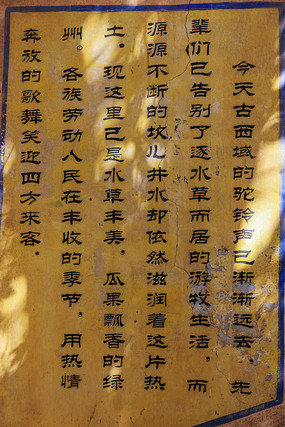 今天古西域的驼铃声已渐渐远去 先
辈们已告别了逐水草而居的游牧生活，而
源源不断的坎儿井水却依然滋润着这片热
土。现这里已是水草丰美，瓜果飘香的绿
州。各族劳动人民在丰收的季节，用热情
奔放的歌舞笑迎四方来客。